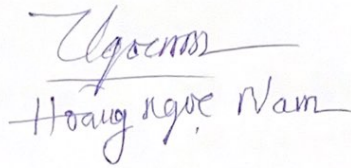 Hoàng Ngọc Nam